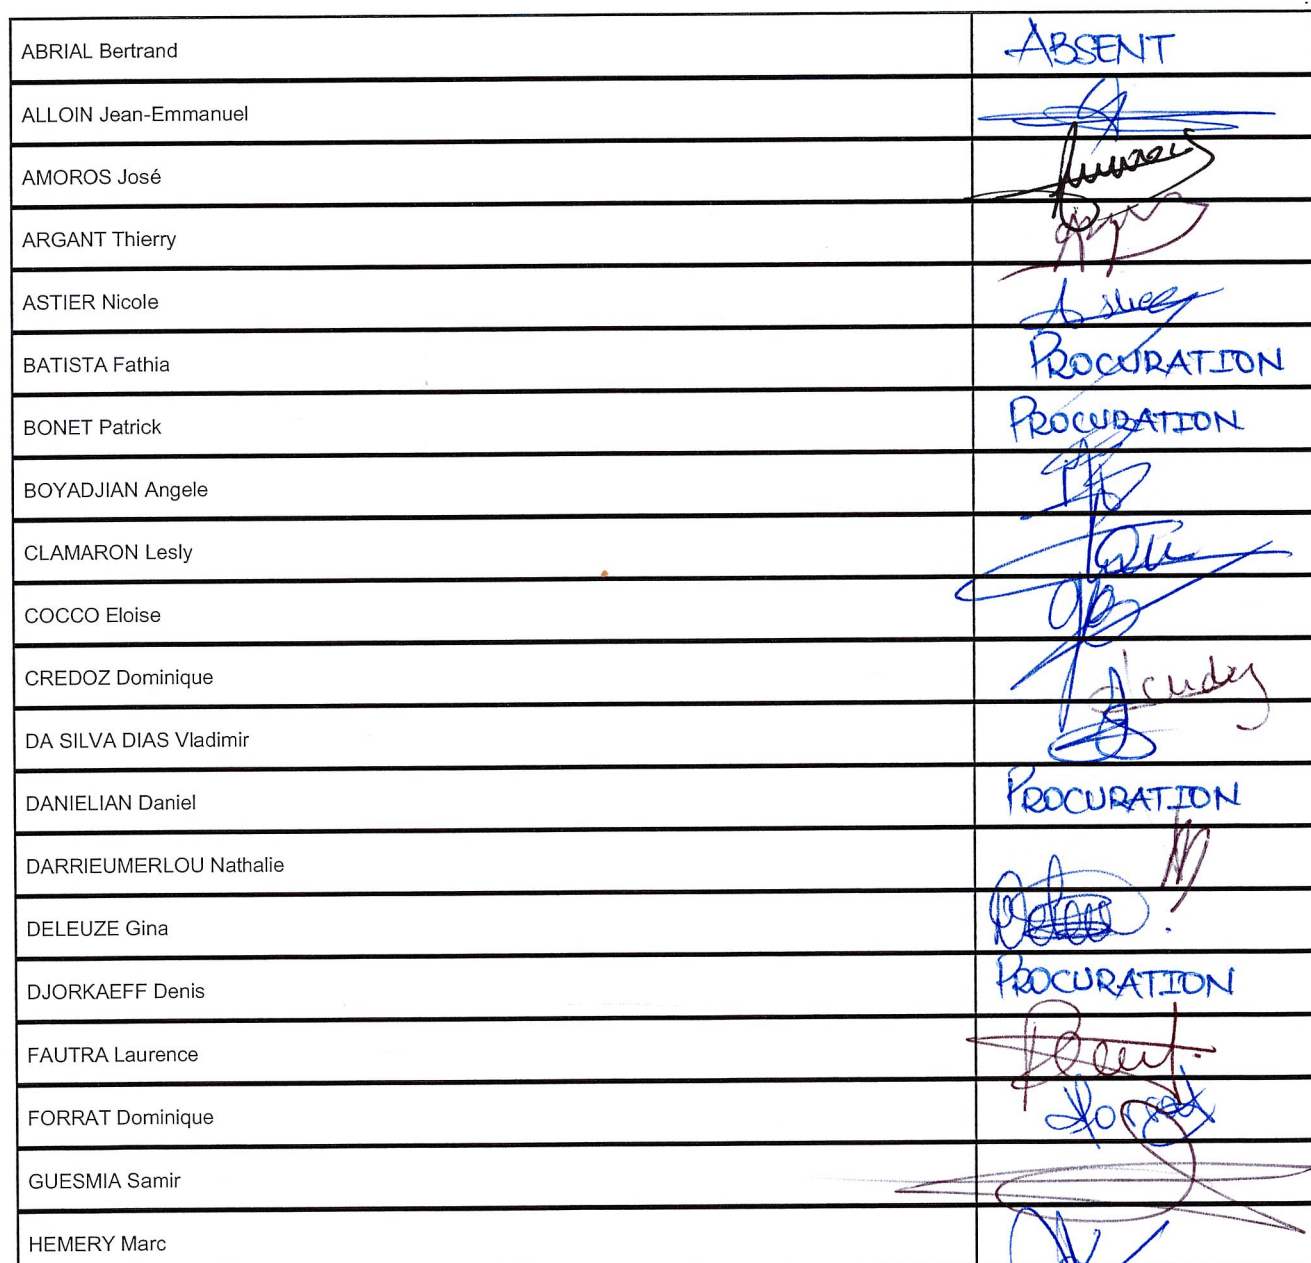 ABRIAL Bertrand ABSENT
ALLOIN Jean-Emmanuel
AMOROS José
ARGANT Thierry
ASTIER Nicole
BATISTA Fathia PROCURATION
BONET Patrick PROCURATION
BOYADJIAN Angele
CLAMARON Lesly
COCCO Eloise
CREDOZ Dominique
DA SILVA DIAS Vladimir
DANIELIAN Daniel PROCURATION
DARRIEUMERLOU Nathalie
DELEUZE Gina
DJORKAEFF Denis PROCURATION
FAUTRA Laurence
FORRAT Dominique
GUESMIA Samir
HEMERY Marc